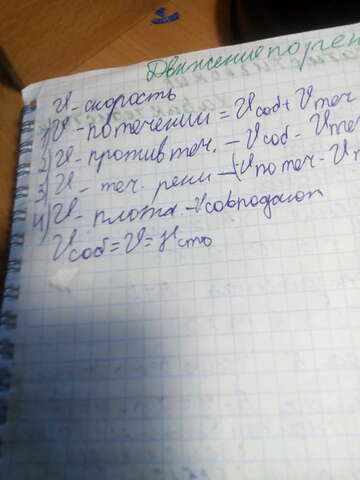 Движение по рек
V - скорость
1) V - по течении = Vсоб + Vтеч
2) V - против теч. - Vсоб - Vтеч
3) V - теч. реки - (Vпо теч - V
4) V - плота - Vсовпадают
Vсоб = V =